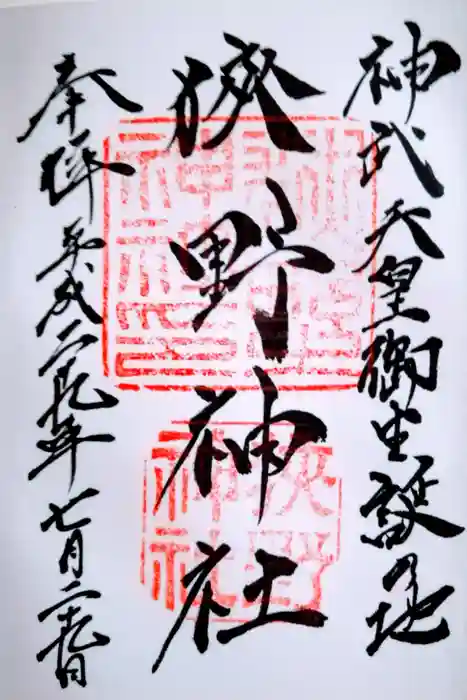 神武天皇御生誕の地
狭野神社
奉拝 平成二十九年七月二十九日
狭野
神社